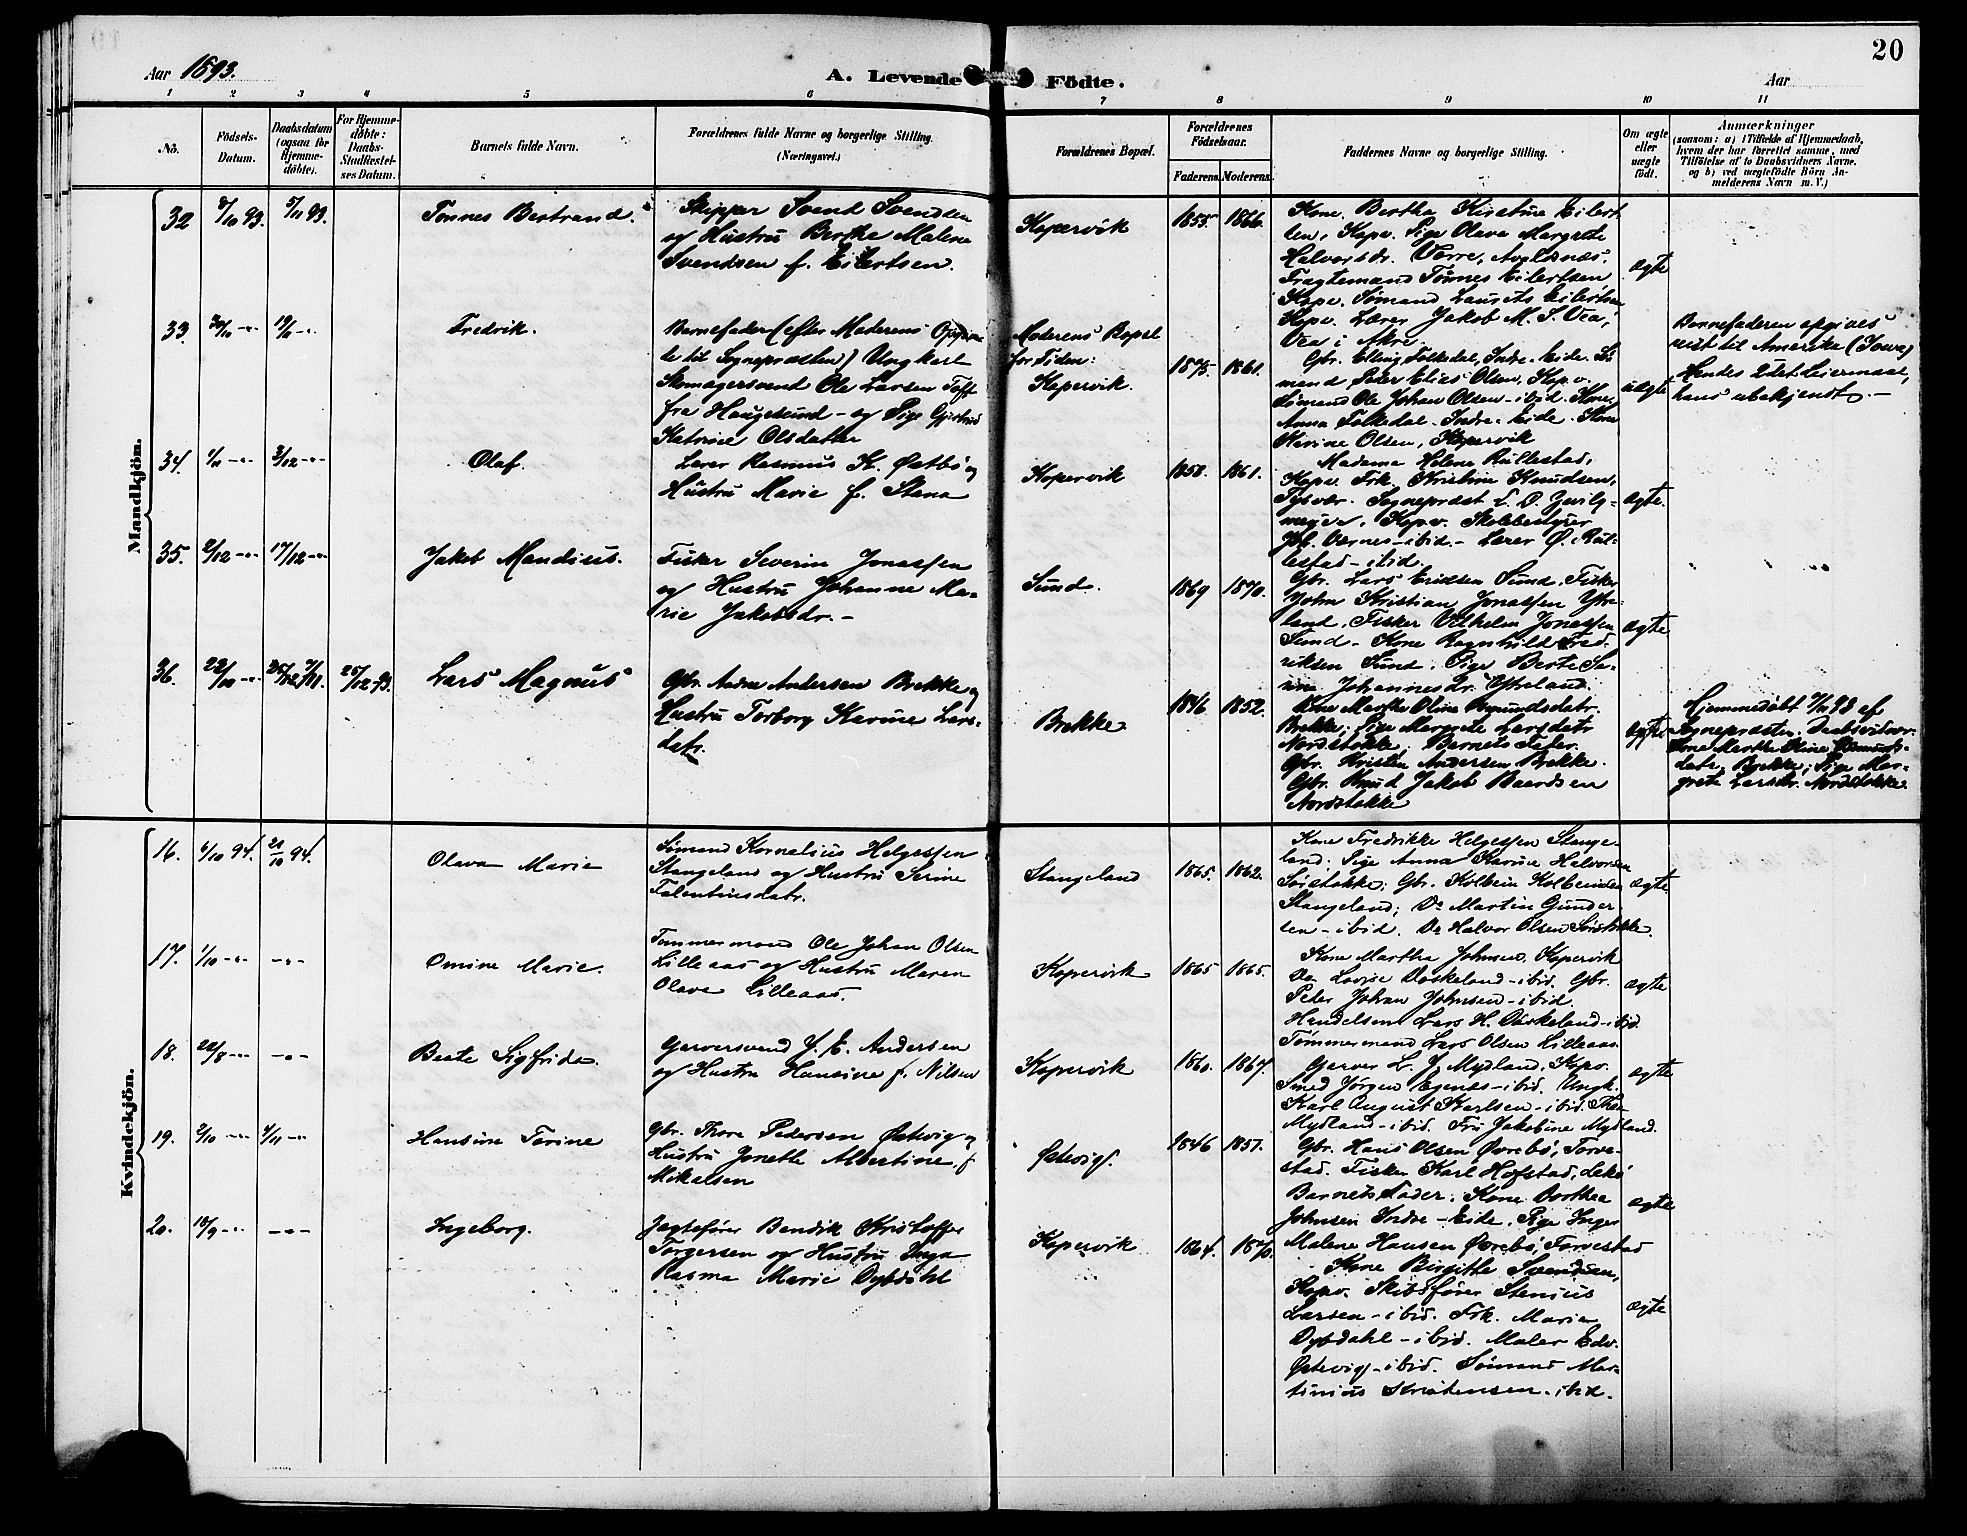 20
Aar 1893.
A. Levende Födte.
Aar
1 2 3 4 5 6 7 8 9 10 11
No.
Födsels-
Datum.
Daabsdatum
(ogsaa for
Hjemme-
döbte).
For Hjemme-
döbte:
Daabs-
Stadfæstel-
ses Datum.
Barnets fulde Navn.
Forældrenes fulde Navne og borgerlige Stilling.
(Næringsvei.)
Forældrenes Bopæl.
Forældrenes
Födselsaar.
Faderens. Moderens.
Faddernes Navne og borgerlige Stilling.
Om ægte
eller
uægte
födt.
Anmærkninger
(saasom: a) i Tilfælde af Hjemmedaab,
hvem der har forrettet samme, med
Tilföielse af to Daabsvidners Navne.
og b) ved uægtefödte Börn An-
melderens Navn m. V.)
Mandkjön.
32 8/10 93. 5/11 93.
Tønnes Bertrand.
Skipper Svend Svendsen
og Hustru Berthe Malene
Svendsen f. Eilertsen.
Kopervik
1855 1866.
Kone Bertha Kirstine Eilert-
sen, Kopv. Pige Olava Margrete
Halvorsdr. Værre, Avaldsnes.
Fragtemand Tønnes Eilertsen
Kopv. Sømand Laurits Eilertsen
Kopv. Lærer Jakob M. S. Vea,
Vea i Akre.
ægte
33. 30/10 -"- 19/11 -"-
Fredrik.
Barnefader (efter Moderens Opgivel-
se til Sognepræsten) Ungkarl
Skomagersvend Ole Larsen Toft
fra Haugesund - og Pige Gjertrud
Katrine Olsdatter
Moderens Bopæl
for Tiden:
Kopervik.
1875. 1861.
Gbr. Elling Folkedal, Indre-Eide. Sø-
mand Peter Elias Olsen, Kopv.
Sømand Ole Johan Olsen - ibid. Kone
Anna Folkedal, Indre-Eide. Kone
Karine Olsen, Kopervik
uægte
Barnefaderen opgives
reist til Amerika (Iowa)
Hendes 2det Leiermaal,
hans ubekjendt. -
34. 1/11 -"- 3/12 -"-
Olaf.
Lærer Rasmus K. Østbø og
Hustru Marie f. Stana
Kopervik
1858. 1861.
Madama Helene Rullestad,
Kopv. Frk. Kristine Knudsen,
Tysvær. Sognepræst L. D. Zwilg-
meyer, Kopv. Skolebestyrer
Joh. Værnes - ibid. - Lærer Ø. Rul-
lestad - ibid.
ægte.
35. 2/12 -"- 17/12 -"-
Jakob Mandius.
Fisker Severin Jonassen
og Hustru Johanne Ma-
rie Jakobsdr. -
Sund.
1869 1870.
Gbr. Lars Eriksen Sund. Fisker
John Kristian Jonassen Ytre-
land. Fisker Vilhelm Jonassen
Sund - Kone Ragnhild Fred-
riksen Sund. Pige Berte Sa-
rine Johannesdr. Ytreland.
ægte
36. -"- 25/12 25/12 93.
Lars Magnus
Gbr. Andre Andersen Brekke og
Hustru Torborg Karine Lars-
datr.
Brekke
1846 1852.
Kone Marthe Oline datr.
Brekke; Pige Margrete Larsdatr
Nordstokke; Barnets Fader.
Gbr. Kristen Andersen Brekke.
Gbr. Knud Jakob Baardsen
Nordstokke
ægte
Hjemmedøbt 93 af
Sognepræsten. Daabsvidner:
Kone Marthe Oline
datr. Brekke; Pige Mar-
grete Larsdr. Nordstokke
Kvindekjön.
16. 6/10 94. 21/10 94.
Olava Marie
Sømand Kornelius Helgessen
Stangeland og Hustru Serine
Talentinsdatr.
Stangeland
1865. 1862.
Kone Fredrikke Helgessen Stange-
land. Pige Anna Karine Halvorsen
Sørstokke; Gbr. Kolbein Kolbeinsen
Stangeland; Do Martin Gunder-
sen - ibid. Do Halvor Olsen Sørstokke.
ægte
17. 1/10 -"- -"-
Omine Marie.
Tømmermand Ole Johan Olsen
Lilleaas og Hustru Maren
Olave Lilleaas.
Kopervik
1865 1865.
Kone Martha Johnsen, Kopervik
Do Lovise Vaskeland - ibid. Gbr.
Peter Johan Johnsen - ibid.
Handelsm Lars H. Vaskeland - ibid.
Tømmermand Lars Olsen Lilleaas.
ægte
18. 22/8 -"- -"-
Beate Sigfride.
Garversvend J. E. Andersen
og Hustru Hansine f. Nilsen
Kopervik
1860. 1867.
Garver L. J. Mydland, Kopv.
Smed Jørgen Egenes - ibid. Ungk.
Karl August Karlsen - ibid. Thea
Mydland - ibid. Fru Jakobine Mydland.
ægte
19. 2/10 -"- 4/11 -"-
Hansine Torine
Gbr. Thore Pedersen Østvig og
Hustru Jonette Albertine f.
Mikalsen
Østevig.
1846 1851.
Gbr. Hans Olsen Ørebø, Torve-
stad. Fisker Karl Hofstad,
Barnets Fader. Kone Dorthea
Johnsen Indre-Eide. Pige Inger
Malene Hansen Ørebø, Torvestad
ægte
20. 18/9 -"- -"-
Ingeborg.
Jagtefører Bendik Kristoffer
Torgersen og Hustru Inga
Rasma Marie Dybdahl
Kopervik
1864. 1870.
Kone Birgitte Svendsen,
Kopv. Skibsfører Stenius
Larsen - ibid. Frk. Marie
Dybdahl - ibid. Maler Edv.
Østevig - ibid. Sømand Mar-
tinius Kristensen - ibid.
ægte